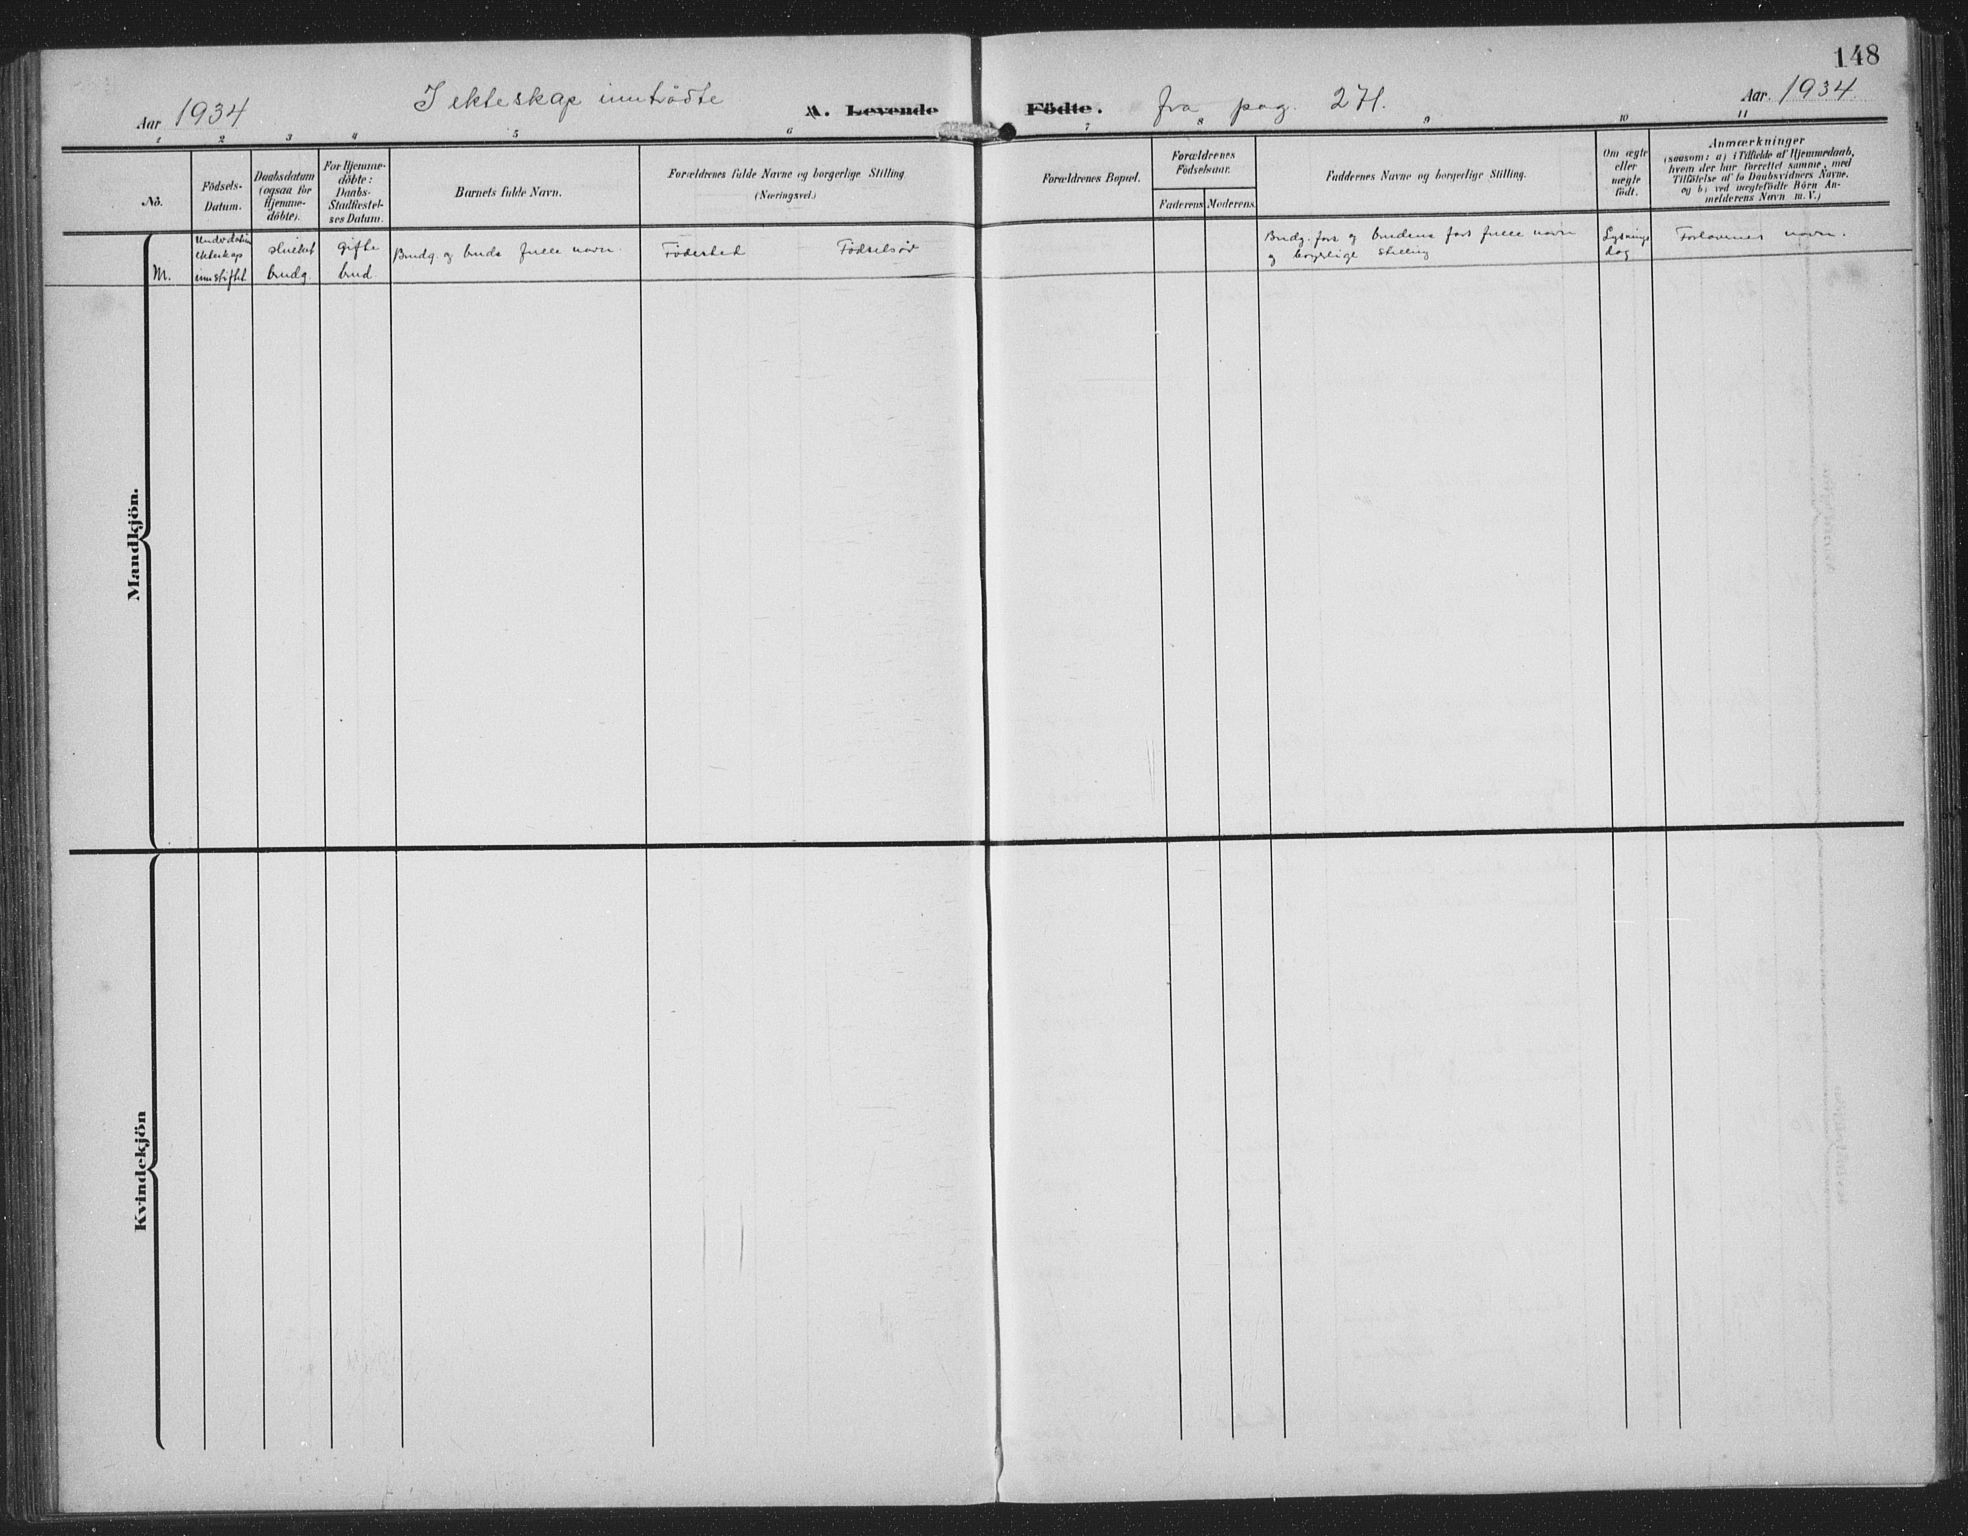 148
Aar 1934 I ekteskap inntrådte A. Levende Födte. fra pag. 271. Aar. 1934.
1 2 3 4 5 6 7 8 9 10 11
No.
Födsels-
Datum.
Daabsdatum
(ogsaa for
Hjemme-
döbte).
For Hjemme-
döbte:
Daabs-
Stadfæstel-
ses Datum.
Barnets fulde Navn.
Forældrenes fulde Navne og borgerlige Stilling
(Næringsvei.)
Forældrenes Bopæl.
Forældrenes
Födselsaar.
Faderens Moderens.
Faddernes Navne og borgerlige Stilling.
Om ægte
eller
uægte
födt.
Anmærkninger
(saasom: a) i Tilfælde af Hjemmedaab,
hvem der har forrettet samme, med
Tilföielse af to Daabsvidners Navne,
og b) ved uægtefödte Börn An-
melderens Navn m. V.)
M.
ekteskap
innstiftet
brudg.
gifte
brud
Brudg. og bruds fulle navn.
Födested
Födselsår
Brudg. fars og brudens fars fulle navn
og borgerlige stilling
Lysnings
dag
Forlovernes navn.
Mandkjön.
Kvindekjön